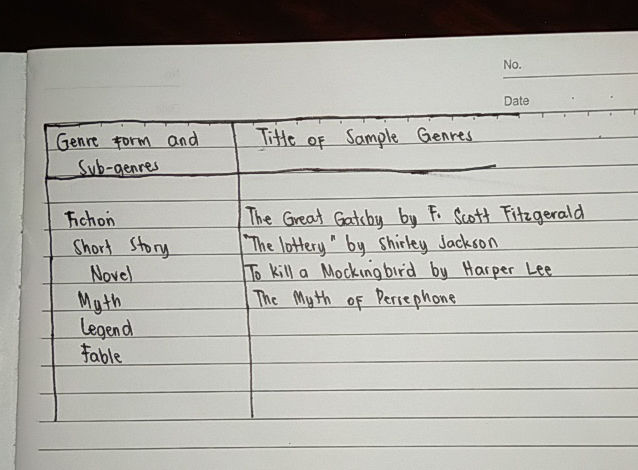 No.
Date
Genre form and Title of Sample Genres
Sub-genres
Fiction The Great Gatsby by F. Scott Fitzgerald
Short Story "The lottery" by Shirley Jackson
Novel To kill a Mockingbird by Harper Lee
Myth The Myth of Persephone
Legend
Fable